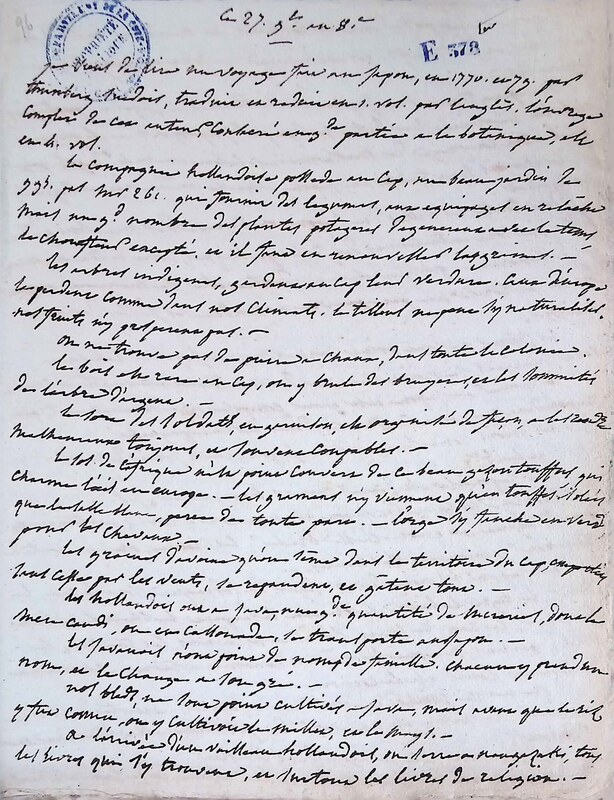 96
ARCHIVES DE LA
PROPRIÉTÉ PUBLIQUE
Ce 27. 9bre an 8.e
E 378
Je viens de lire un voyage fait au Japon, en 1770. et 79. par
thunberg suédois, traduit et rédigé en 1. vol. par langlès. l'ouvrage
complet de cet auteur, consacré en gde partie a la botanique, est
en 4. vol.
la Compagnie hollandoise possede au Cap, un beau jardin de
996. pas sur 261. qui fournit des legumes, aux equipages en relache
mais un gd nombre des plantes potageres degenerent avec le tems
le choufleur excepté, et il faut en renouveller les graines. —
les arbres indigenes, gardent au Cap leur verdure. Ceux d'europe
la perdent comme dans nos climats. le tilleul ne peut s'y naturaliser.
nos fruits n'y prosperent pas. —
on ne trouve pas de pierre a Chaux, dans toute la Colonie.
le bois est rare au Cap, on y brule des bruyeres, et les sommités
de l'arbre d'argent. —
le sort des soldats, en garnison, est
malheureux toujours, et souvent coupables. —
le sol de l'afrique n'est point couvert de ce beau gazon touffus qui
charme l'œil en europe. — les gramens n'y viennent qu'en touffes isolées
que le sable blanc, perce de toute part. — l'orge s'y fauche en verd
pour les chevaux. —
les graines d'avoine qu'on seme dans le territoire du Cap, emportées
sans cesse par les vents, se repandent, et gatent tout. —
les hollandois ont a Java, une gde quantité de
sucre candi, ou en cassonade, se transporte au Japon. —
les Javanois n'ont point de noms de famille. chacun y prend un
nom, et le change a son gré. —
nos bleds, ne sont point cultivés a Java, mais outre que le riz
y est commun, on y cultive le millet, et le mays. —
a l'arrivée d'un vaisseau hollandois, on serre a nangazaki, tous
les livres qui s'y trouvent, et surtout les livres de religion. —